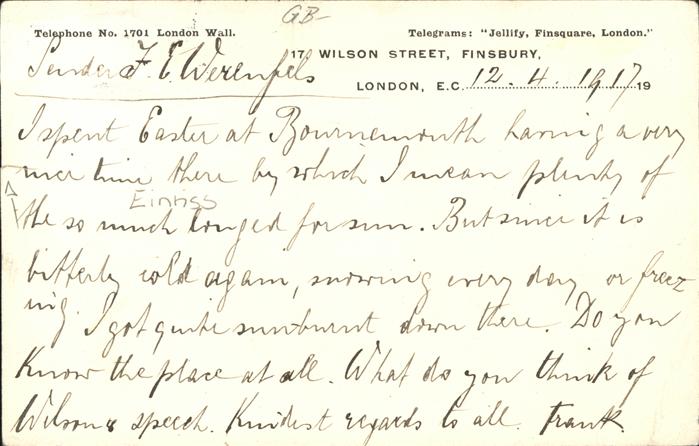 GB-
Telephone No. 1701 London Wall.
Telegrams: "Jellify, Finsquare, London."
17 WILSON STREET, FINSBURY,
Sender F. E. Werenfels
LONDON, E.C. 12. 4. 1917 19
I spent Easter at Bournemouth having a very
nice time there by which I mean plenty of
Einriss
the so much longed for sun. But since it is
bitterly cold again, snowing every day or freez
ing. I got quite sunburnt down there. Do you
know the place at all. What do you think of
Wilsons speech. Kindest regards to all. Frank.